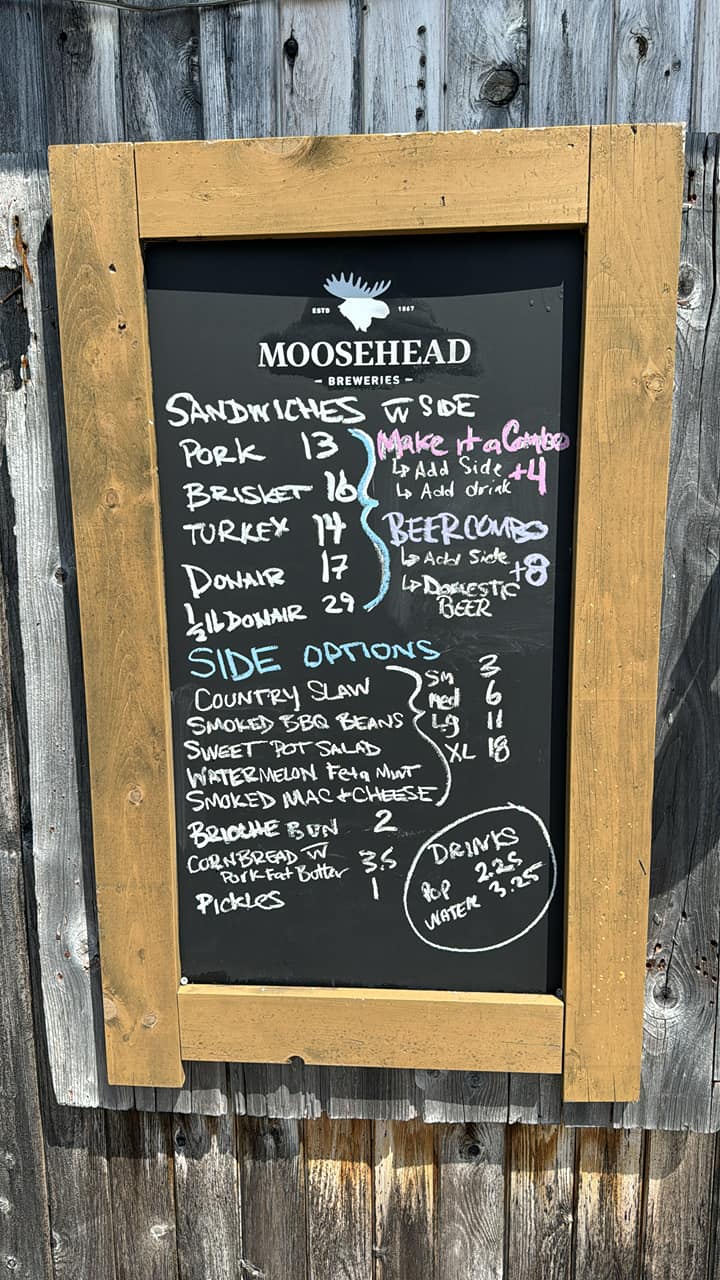 ESTD 1867
MOOSEHEAD
– BREWERIES –
SANDWICHES W SIDE
PORK 13
BRISKET 16
TURKEY 14
DONAIR 17
1/2 lb DONAIR 29
Make it a Combo
↳ Add Side +4
↳ Add drink
BEER COMBO
↳ Add Side +8
↳ DOMESTIC
BEER
SIDE OPTIONS
COUNTRY SLAW
SMOKED BBQ BEANS
SWEET POT SALAD
WATERMELON Feta Mint
SMOKED MAC + CHEESE
Sm 3
Med 6
Lg 11
XL 18
BRIOCHE BUN 2
CORNBREAD W 3.5
Pork Fat Butter
PICKLES 1
DRINKS
POP 2.25
WATER 3.25